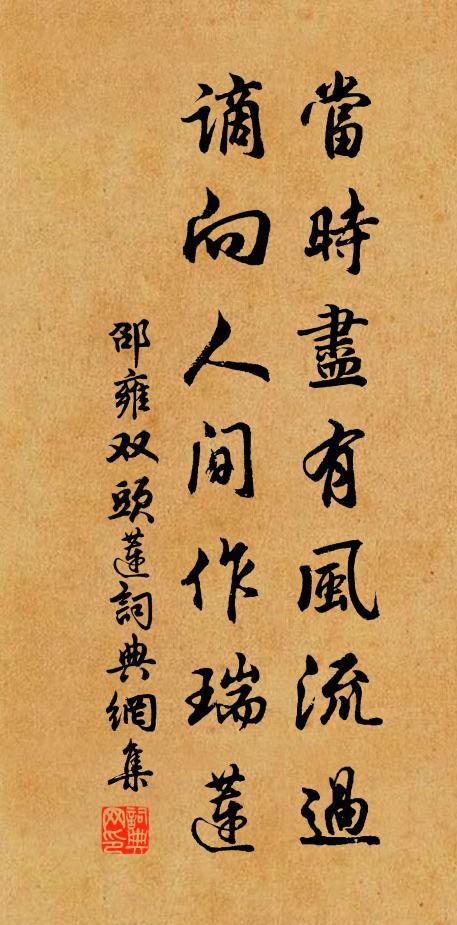 當時盡有風流過
謫向人間作瑞蓮
邵雍双頭蓮詞典網集
詞典网印